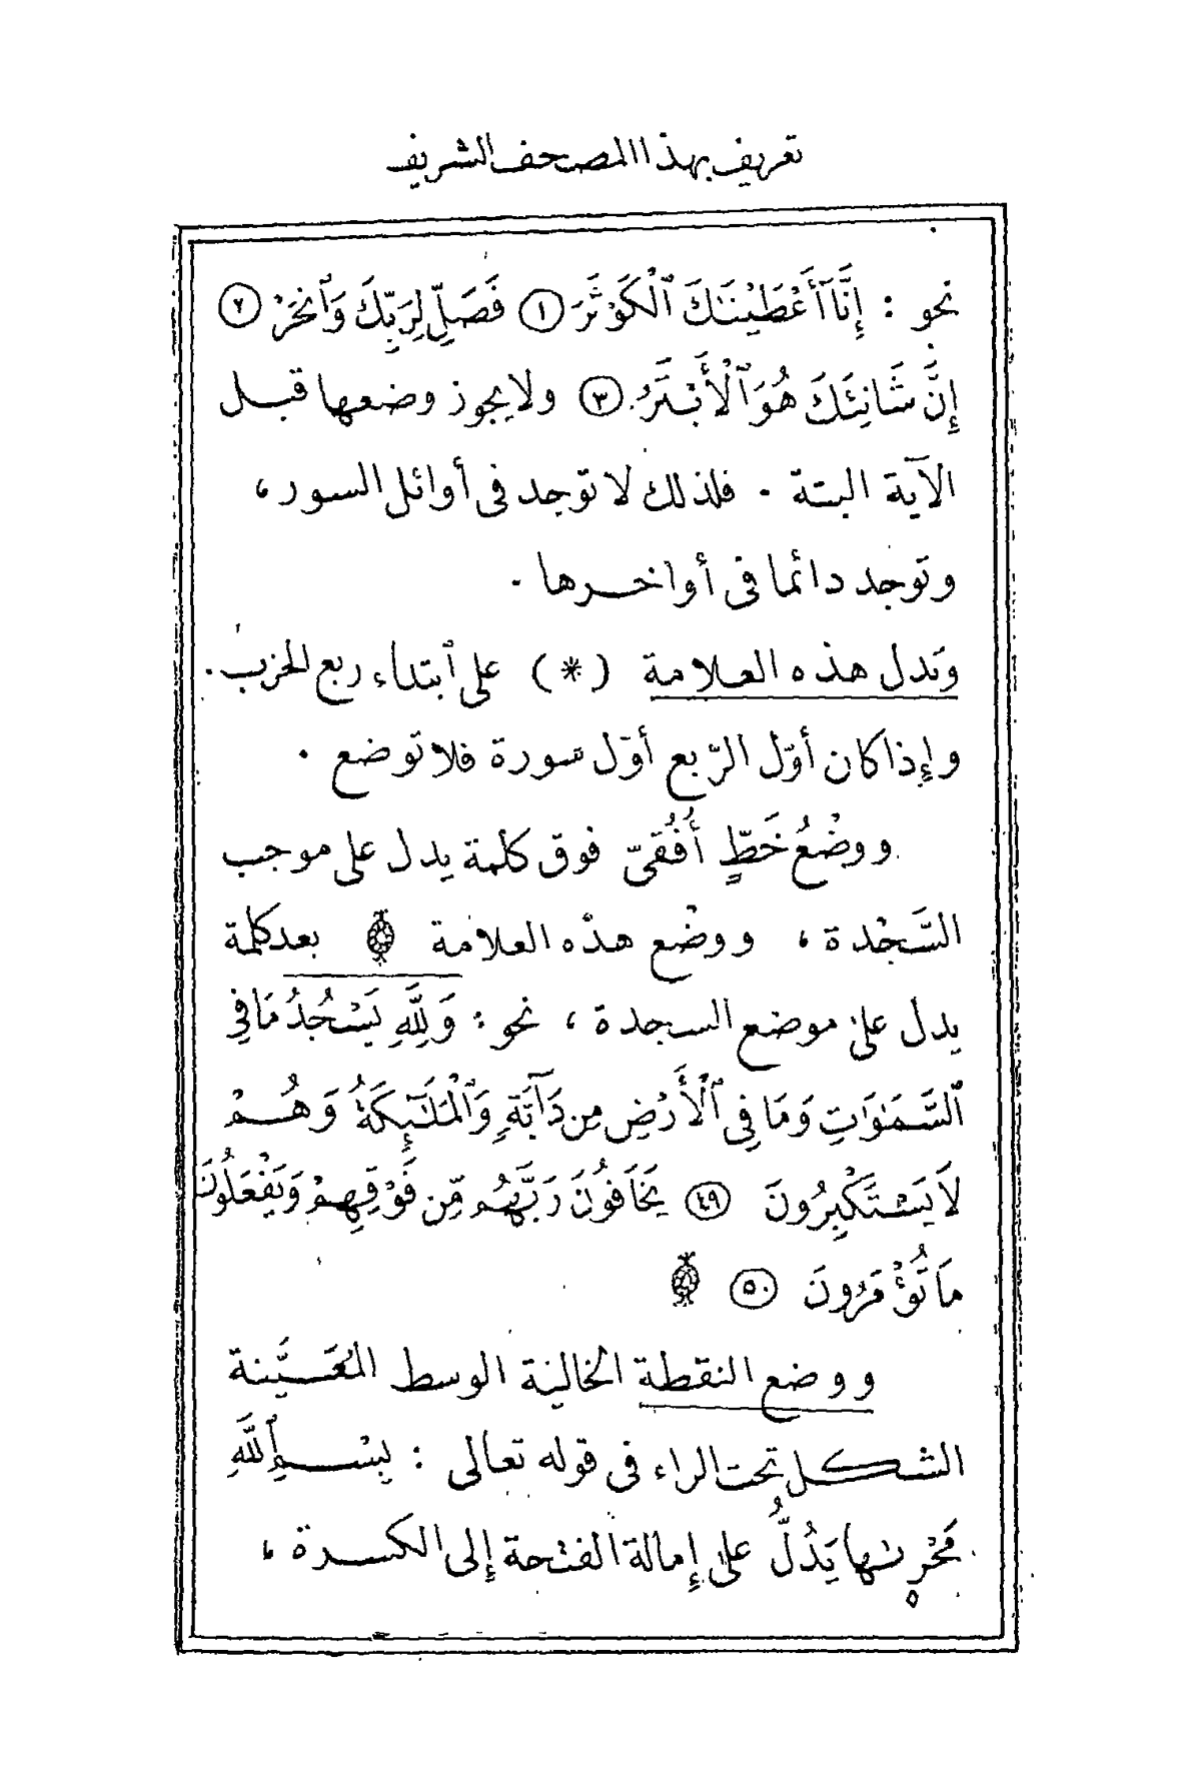 تعريف بهذا المصحف الشريف
نحو : إِنَّآ أَعْطَيْنَٰكَ ٱلْكَوْثَرَ ١ فَصَلِّ لِرَبِّكَ وَٱنْحَرْ ٢
إِنَّ شَانِئَكَ هُوَ ٱلْأَبْتَرُ ٣ ولا يجوز وضعها قبل
الآية البتة . فلذلك لا توجد فى أوائل السور ،
وتوجد دائما فى أواخرها .
وتدل هذه العلامة ( * ) على ٱبتداء ربع الحزب .
وإذا كان أوّل الرّبع أوّل سورة فلا توضع .
ووضْعُ خَطٍّ أُفُقىّ فوق كلمة يدل على موجب
السَّجْدة ، ووضْع هذه العلامة ۩ بعد كلمة
يدل على موضع السجدة ، نحو : وَلِلَّهِ يَسْجُدُ مَا فِى
ٱلسَّمَٰوَٰتِ وَمَا فِى ٱلْأَرْضِ مِن دَآبَّةٍ وَٱلْمَلَٰٓئِكَةُ وَهُمْ
لَا يَسْتَكْبِرُونَ ٤٩ يَخَافُونَ رَبَّهُم مِّن فَوْقِهِمْ وَيَفْعَلُونَ
مَا يُؤْمَرُونَ ٥٠ ۩
ووضع النقطة الخالية الوسط المُعَيَّنة
الشكل تحت الراء فى قوله تعالى : بِسْمِ ٱللَّهِ
مَجْر۪ىٰهَا يَدُلُّ على إمالة الفتحة إلى الكسرة ،